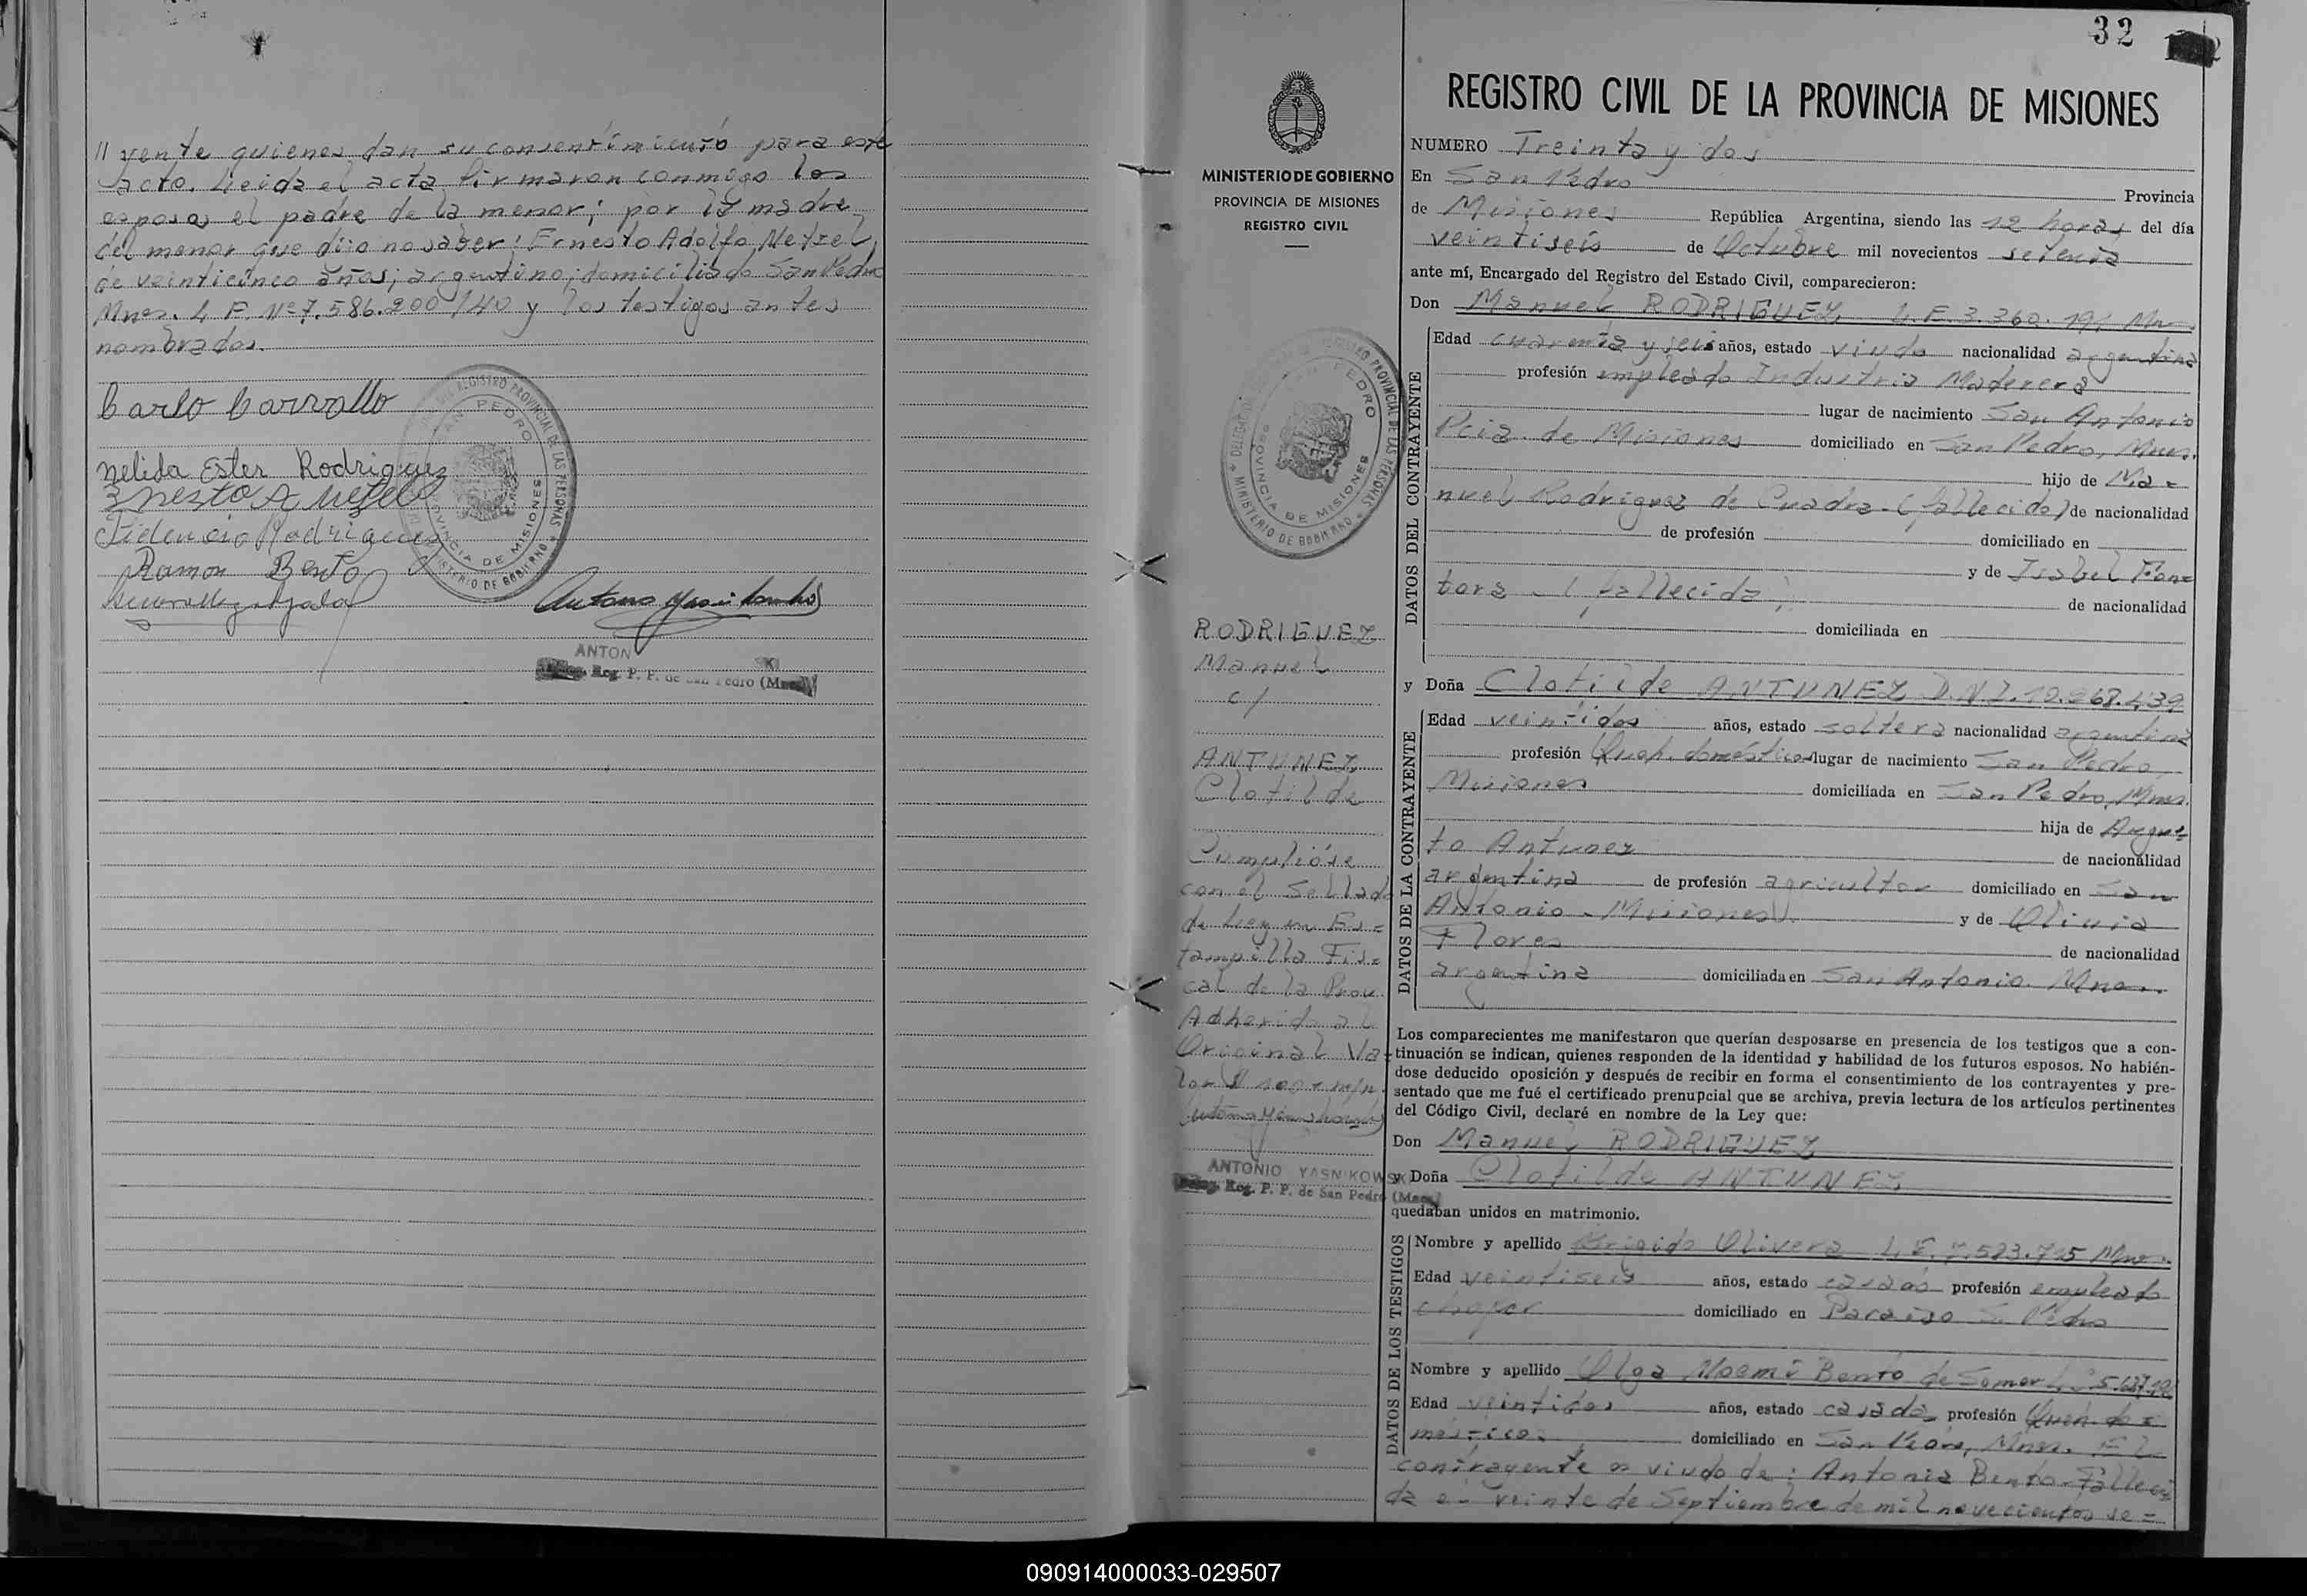 // yente quienes dan su consentimiento para este
acto. Leida el acta firmaron conmigo los
esposos el padre de la menor; por la madre
del menor que dijo no saber: Ernesto Adolfo Netzel,
de veinticinco años; argentino; domiciliado San Pedro
Mnes. L E. Nº 7.586.200 /40 y los testigos antes
nombrados.
Carlo Carvallo
nelida Ester Rodriguez
Ernesto A Netzel
Fidencio Rodrigues
Ramon Bento
SAN PEDRO
PROVINCIA DE MISIONES
REGISTRO PROVINCIAL DE LAS PERSONAS
MINISTERIO DE GOBIERNO
ANTON
Reg. P. P. de San Pedro
32
MINISTERIO DE GOBIERNO
PROVINCIA DE MISIONES
REGISTRO CIVIL
SAN PEDRO
PROVINCIA DE MISIONES
REGISTRO PROVINCIAL DE LAS PERSONAS
MINISTERIO DE GOBIERNO
RODRIGUEZ
Manuel
c/
ANTUNEZ
Clotilde
Cumplióse
con el Sellado
de Ley en Es=
tampilla Fis=
cal de la Prov.
Adherida al
Original Va=
lor $ 100 m/n.
ANTONIO YASNIKOWSKI
Reg. P. P. de San Pedro (Mnes)
REGISTRO CIVIL DE LA PROVINCIA DE MISIONES
NUMERO Treinta y dos
En San Pedro Provincia
de Misiones República Argentina, siendo las 12 horas del día
veintiseis de Octubre mil novecientos setenta
ante mí, Encargado del Registro del Estado Civil, comparecieron:
Don Manuel RODRIGUEZ L.E. 3.360. Mn
DATOS DEL CONTRAYENTE
Edad cuarenta y seis años, estado viudo nacionalidad argentina
profesión empleado Industria Maderera
lugar de nacimiento San Antonio
Pcia. de Misiones domiciliado en San Pedro, Mnes.
hijo de Ma=
nuel Rodriguez de Cuadra - (fallecido) de nacionalidad
de profesión domiciliado en
y de Isabel Fon=
tora - (fallecida) de nacionalidad
domiciliada en
y Doña Clotilde ANTUNEZ D.N.I. 12.268.439
DATOS DE LA CONTRAYENTE
Edad veintidos años, estado soltera nacionalidad argentina
profesión Queh. domésticos lugar de nacimiento San Pedro,
Misiones domiciliada en San Pedro, Mnes.
hija de Augus=
to Antunez de nacionalidad
argentina de profesión agricultor domiciliado en San
Antonio - Misiones y de Olivia
Flores de nacionalidad
argentina domiciliada en San Antonio. Mnes.
Los comparecientes me manifestaron que querían desposarse en presencia de los testigos que a con-
tinuación se indican, quienes responden de la identidad y habilidad de los futuros esposos. No habién-
dose deducido oposición y después de recibir en forma el consentimiento de los contrayentes y pre-
sentado que me fué el certificado prenupcial que se archiva, previa lectura de los artículos pertinentes
del Código Civil, declaré en nombre de la Ley que:
Don Manuel RODRIGUEZ
y Doña Clotilde ANTUNEZ
quedaban unidos en matrimonio.
DATOS DE LOS TESTIGOS
Nombre y apellido Brigido Olivera L.E. 7.523.715 Mnes.
Edad veintiseis años, estado casado profesión empleado
chofer domiciliado en Paraiso S. Pedro
Nombre y apellido Olga Noemi Bento de Somer
Edad veintidos años, estado casada profesión Queh. do=
mésticos domiciliado en San Pedro, Mnes. El
contrayente es viudo de: Antonia Bento. Falleci
da el veinte de Septiembre de mil novecientos se=
090914000033-029507